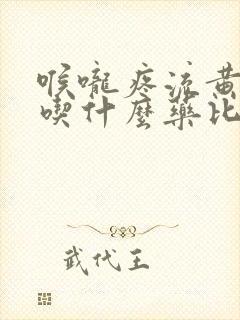 喉嚨疼流黃
喫什麼藥比
武代王